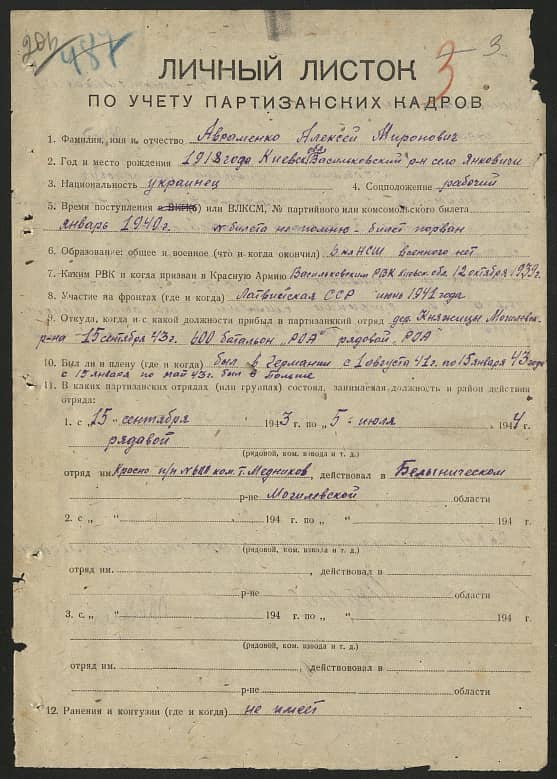 487
3 3
ЛИЧНЫЙ ЛИСТОК
ПО УЧЕТУ ПАРТИЗАНСКИХ КАДРОВ
1. Фамилия, имя и отчество Авраменко Алексей Миронович
2. Год и место рождения 1918 года Киевск обл Васильковский р-н село Янковичи
3. Национальность украинец 4. Соцположение рабочий
5. Время поступления в ВКП(б) или ВЛКСМ, № партийного или комсомольского билета
январь 1940 г. № билета не помню - билет порван
6. Образование: общее и военное (что и когда окончил) 6 кл НСШ военного нет
7. Каким РВК и когда призван в Красную Армию Васильковским РВК обл. 12 октября 1939г.
8. Участие на фронтах (где и когда) Латвийская ССР июнь 1941 года
9. Откуда, когда и с какой должности прибыл в партизанский отряд дер. Княжицы Могилевск.
р-на 15 сентября 43 г. 600 батальон "РОА" рядовой "РОА"
10. Был ли в плену (где и когда) был в Германии с 1 августа 41 г. по 15 января 43 года
с 15 января по май 43 г. был в Польше
11. В каких партизанских отрядах (или группах) состоял, занимаемая должность и район действия
отряда:
1. с „15" сентября 1943 г. по „5" июля 1944 г.
рядовой
(рядовой, ком. взвода и т. д.)
отряд им. п/п № 600 ком. т. Медников, действовал в Белыническом
р-не Могилевской области
2. с „ " 194 г. по „ " 194 г.
(рядовой, ком. взвода и т. д.)
отряд им. , действовал в
р-не области
3. с „ " 194 г. по „ " 194 г.
(рядовой, ком. взвода и т. д.)
отряд им. , действовал в
р-не области
12. Ранения и контузии (где и когда) не имеет